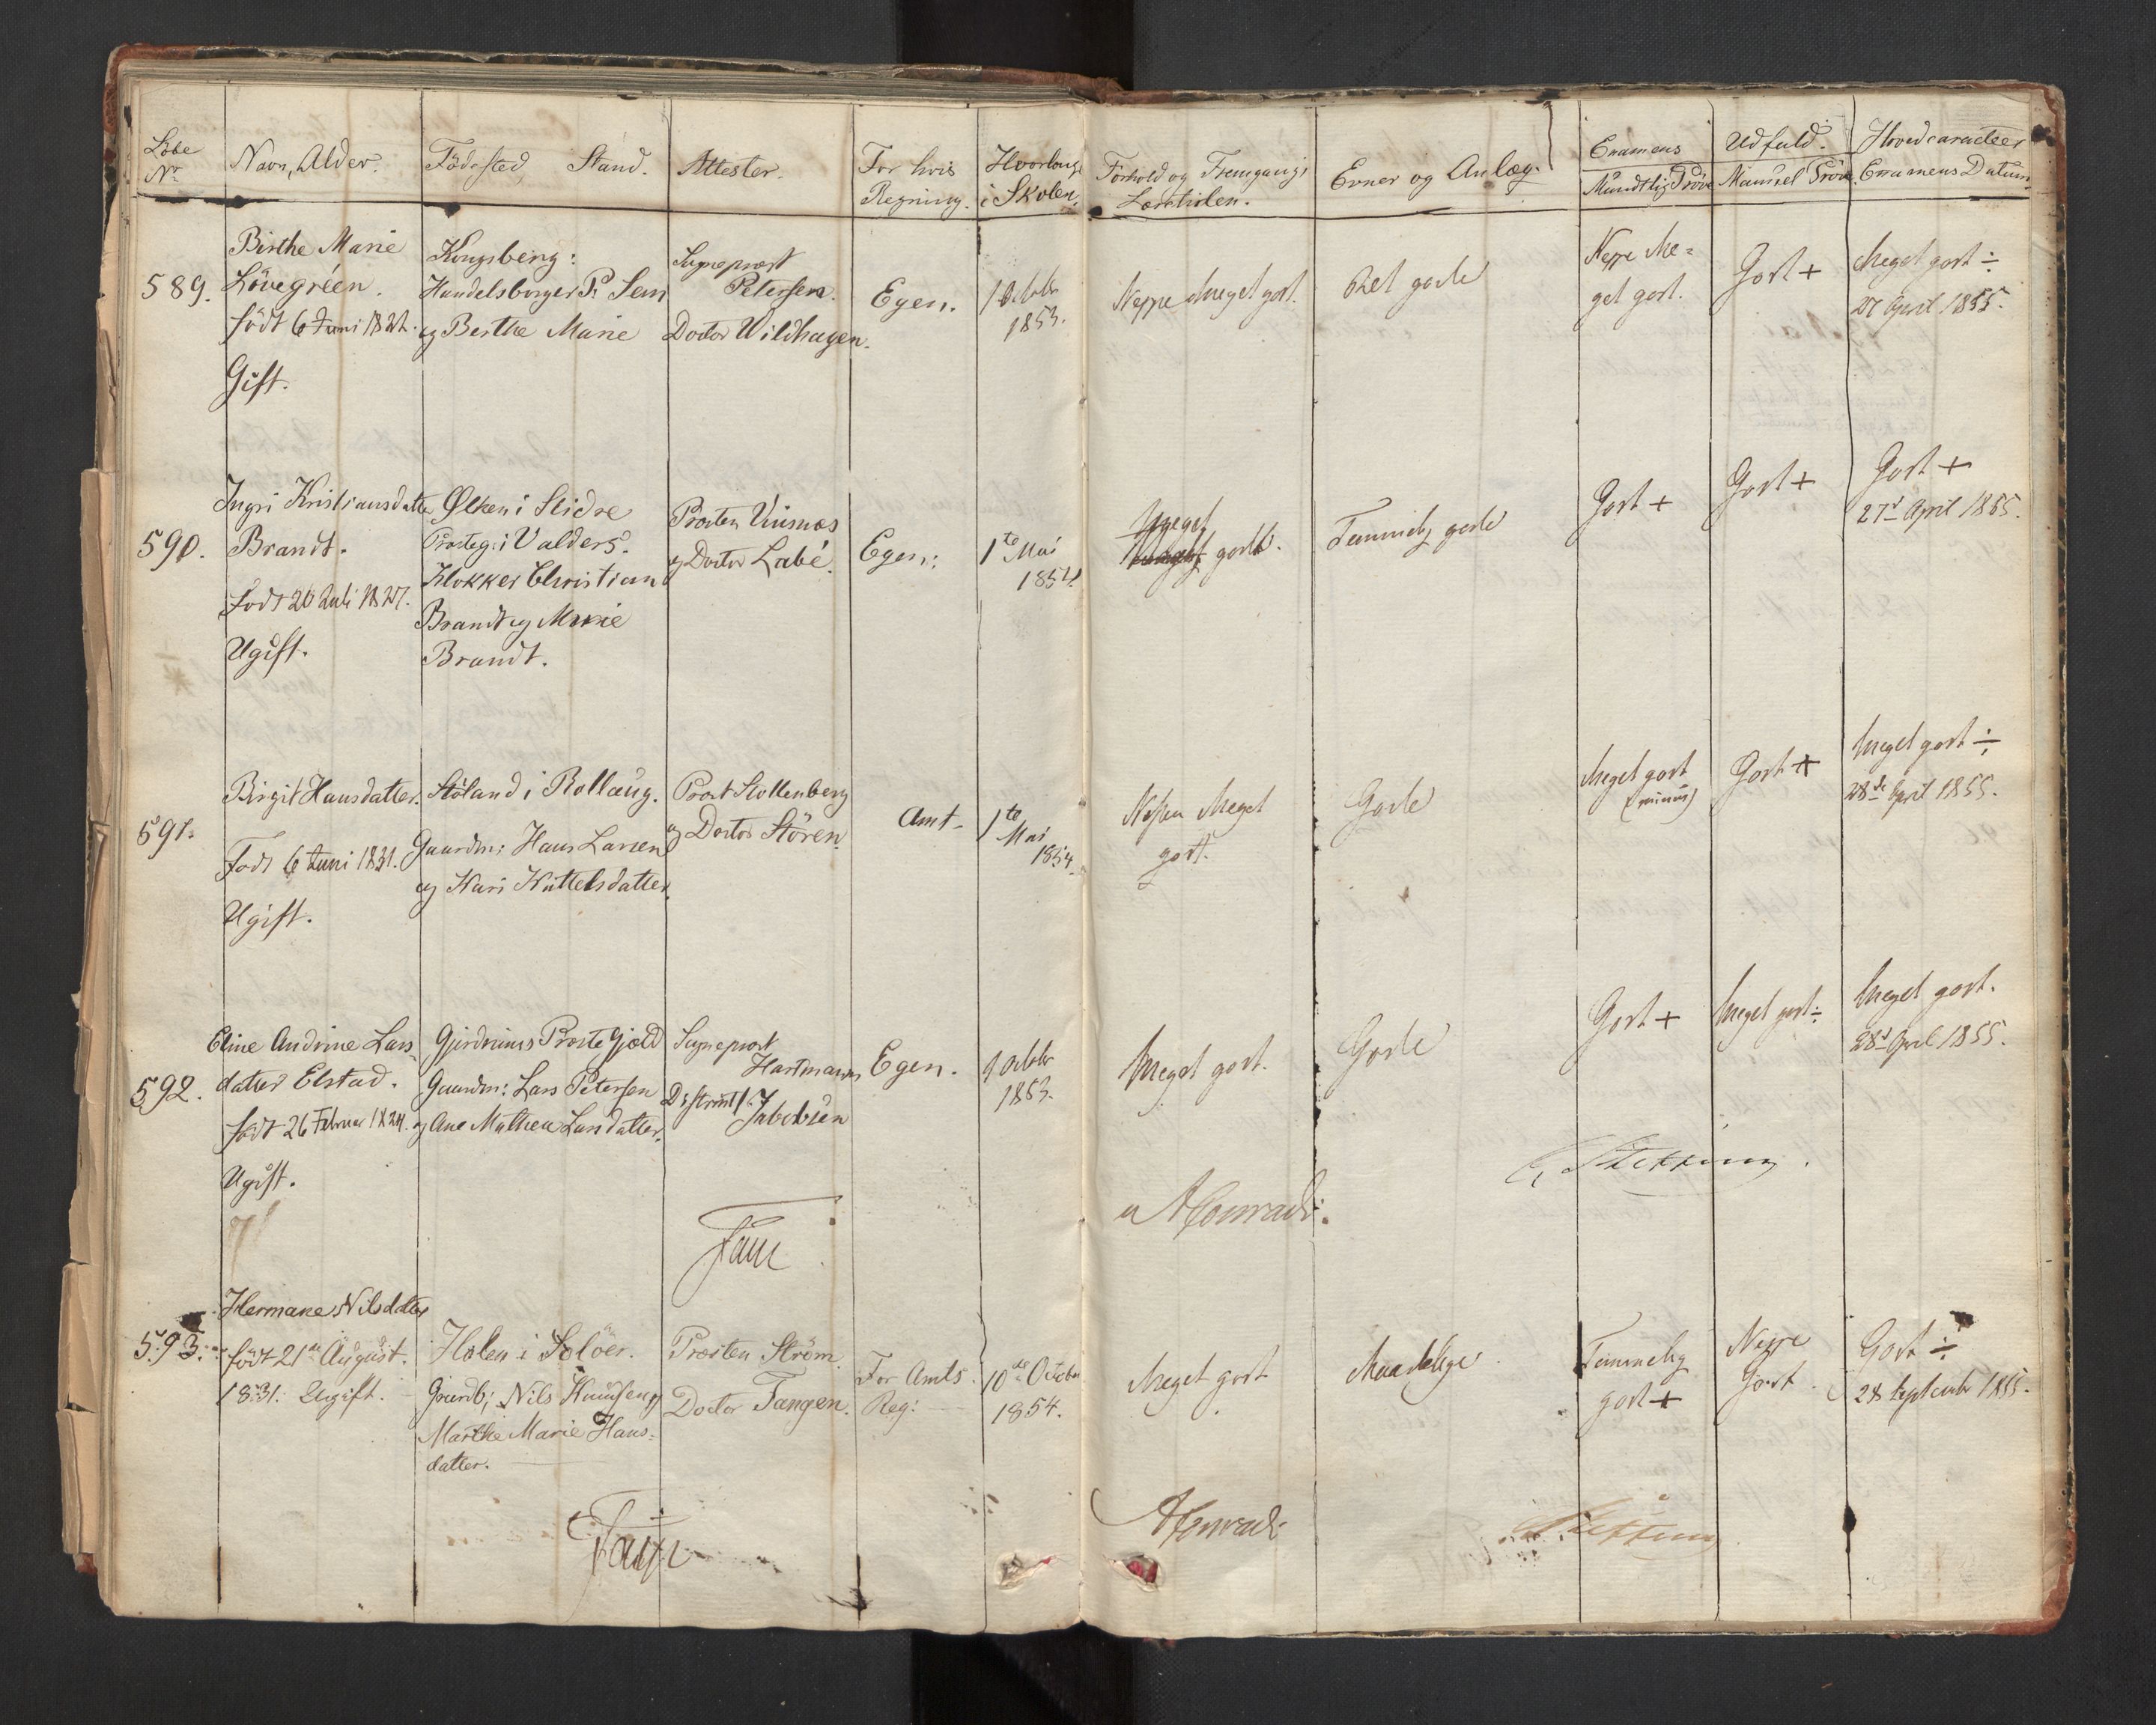 Löbe
No
Navn, Alder.
Födested, Stand.
Attester.
For hvis
Regning.
Hvorlænge
i Skolen.
Forhold og Fremgang i
Læretiden.
Evner og Anlæg.
Examens
Mundtlig Pröve
Udfald.
Manuel Pröve
Hovedcaracteer
Examens Datum.
589.
Birthe Marie
Lövegréen.
född 6 Juni 1821.
Gift.
Kongsberg:
Handelsborger P. Sem
og Berthe Marie
Sognepræst
Petersen.
Doctor Wildhagen.
Egen.
1 Octobr
1853.
Neppe Meget godt.
Ret gode
Neppe Me=
get godt.
Godt +
Meget godt ÷
27 April 1855.
590.
Ingri Kristiansdatter
Brandt.
Født 20 Juli 1827.
Ugift.
Ølken i Slidre
Præsteg: i Valders.
Klokker Christian
Brandt og Marie
Brandt.
Prosten
og Doctor Labé.
Egen:
1te Mai
1854.
Meget
godt.
Temmelig gode
Godt +
Godt +
Godt +
27d April 1855.
591.
Birgit Hansdatter.
Født 6 Juni 1831.
Ugift.
Stöland i Rollaug.
Gaardm: Hans Larsen
og Kari Kittelsdatter.
Prost Stoltenberg
og Doctor Stören
Amt.
1te
Mai
1854.
Neppe Meget
godt.
Gode
Meget godt
(minus)
Godt +
Meget godt ÷
28de April 1855.
592.
Eline Andrine Lars-
datter Elstad.
født 26 Februar 1824.
Ugift.
Gjerdrums Præstegjæld
Gaardm: Lars Petersen
og Ane Mathea Larsdatter.
Sognepræst
Hartmann
Jakobsen
Egen.
1 Octobr
1853.
Meget godt.
Gode
Godt +
Meget godt ÷
Meget godt.
28d April 1855.
Faye
Conradi.
593.
Hermane Nilsdatter
født 21de August.
1831. Ugift.
Halen i Solöer.
Gaardb; Nils Knudsen og
Marthe Marie Hans=
datter.
Præsten Ström.
Doctor Tangen.
For Amts
Reg:
10de October
1854.
Meget godt
Maadelige
Temmelig
godt +
Neppe
Godt
Godt ÷
28 September 1855.
Faye
Conradi